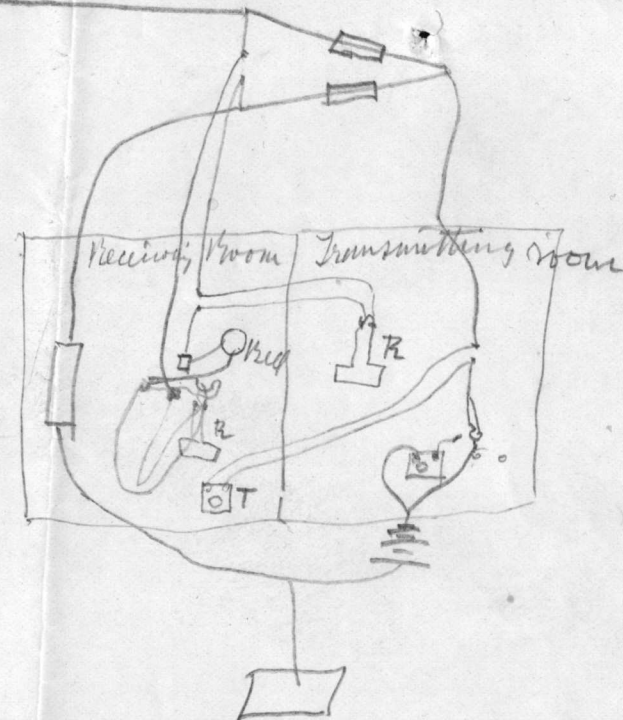 Receiving Room
Transmitting room
R
Rec
R
T